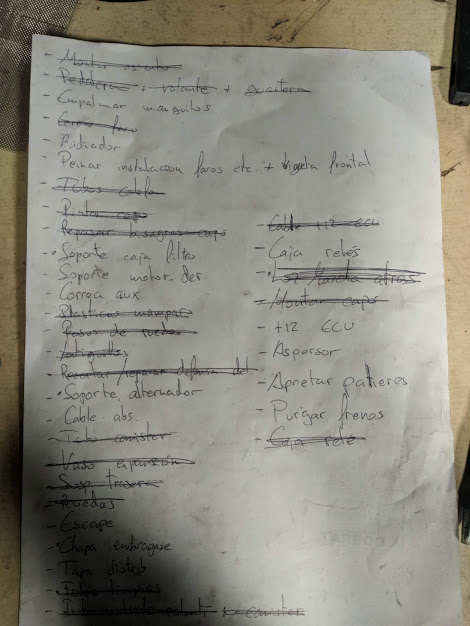 - Montar
- Pedalera + volante + guantera
- Empalmar manguitos
- Cerrar faro
Radiador
- Peinar instalacion faros etc + vigueta frontal
- Tubos calefa
- Pintar capo
- Repasar bisagras capo
- Soporte caja filtro
- Soporte motor der.
Correa aux
- Plasticos mampara
- Pasos de rueda
- latiguillos
- Recortar/reparar defensa del
- Soporte alternador
- Cable abs.
- Tubo canister
- Vaso expansión
- Susp. trasera
- Ruedas
- Escape
- Chapa embrague
- Tapa distrib
- limpias
- Tubo canister
- Cable +12 ECU
- Caja relés
- Luz Marcha atras
- Montar capo
- +12 ECU
- Aspersor
- Apretar palieres
- Purgar frenos
- Caja relé